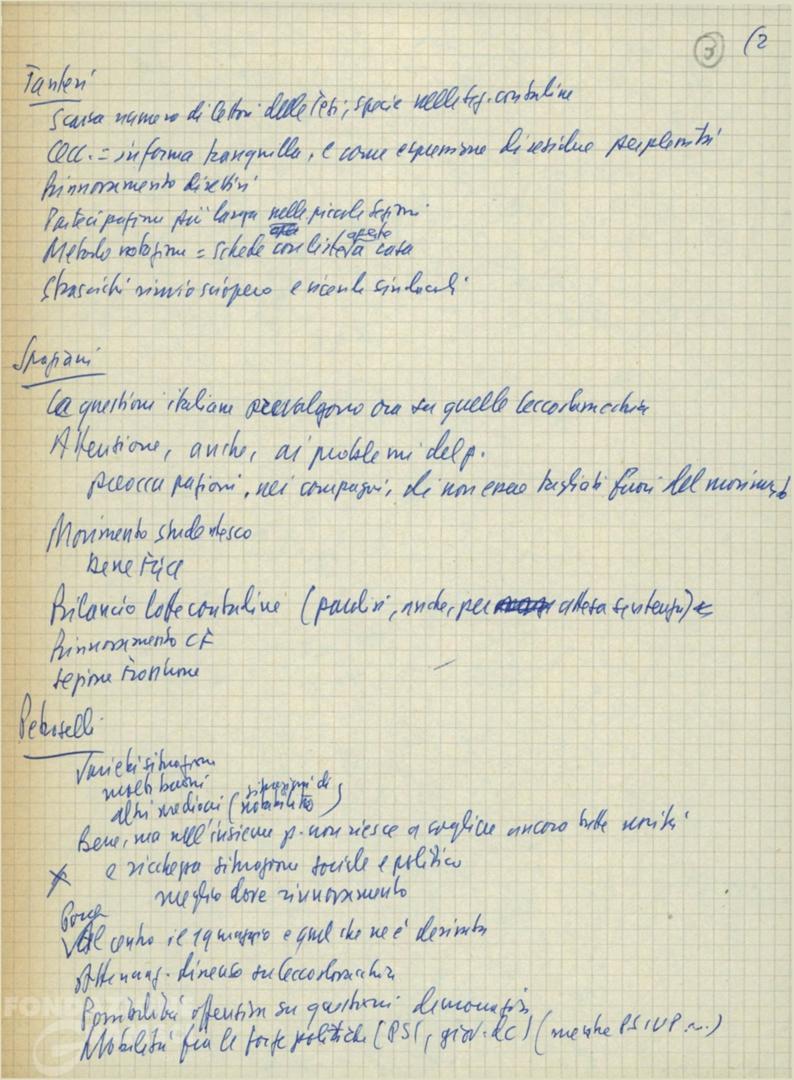 3 (2
Tanteri
Scarso numero di lettori delle Tesi, specie nelle sez. contadine
Cecc. = in forma tranquilla, e come espressione di residue perplessità
Rinnovamento direttivi
Partecipazione più larga nelle piccole sezioni
Metodo votazione = schede con lista aperta a casa
Strascichi rinvio sciopero e vicende sindacali
Spaziani
Le questioni italiane prevalgono ora su quelle cecoslovacchia
Attenzione, anche, ai problemi del p.
preoccupazioni, nei compagni, di non essere tagliati fuori del movimento
Movimento studentesco
bene FGCI
Bilancio lotte contadine (parlisi, anche, per attesa sentenza)
Rinnovamento CF
sezione Frosinone
Petroselli
Varietà situazioni
molti buoni
altri mediocri (situazioni di notabilato)
Bene, ma nell'insieme p. non riesce a cogliere ancora tutte novità
e ricchezza situazione sociale e politica
meglio dove rinnovamento
Al centro il 19 maggio e quel che ne è derivato
Attenuaz. dissenso su cecoslovacchia
Possibilità offensiva su questioni democrazia
Mobilità fra le forze politiche (PSI, giov. dc) (mentre PSIUP no)
FONDAZIONE
G